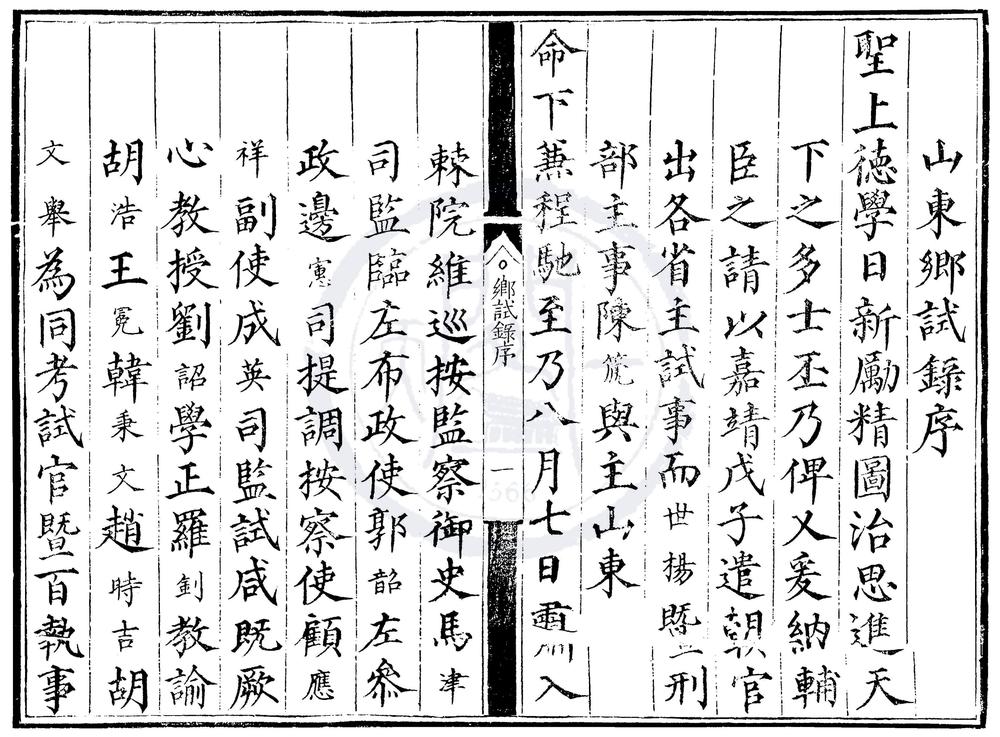 山東鄉試錄序
聖上德學日新勵精圖治思進天
下之多士丕乃俾乂爰納輔
臣之請以嘉靖戊子遣朝官
出各省主試事而世揚暨刑
部主事陳箎與主山東
命下蒹程馳至乃八月七日入
鄉試錄序
一
棘院維巡按監察御史馬津
司監臨左布政使郭韶左叅
政邊憲司提調按察使顧應
祥副使成英司監試咸既厥
心教授劉詔學正羅釗教諭
胡浩王冕韓秉文趙時吉胡
文舉為同考試官暨百執事